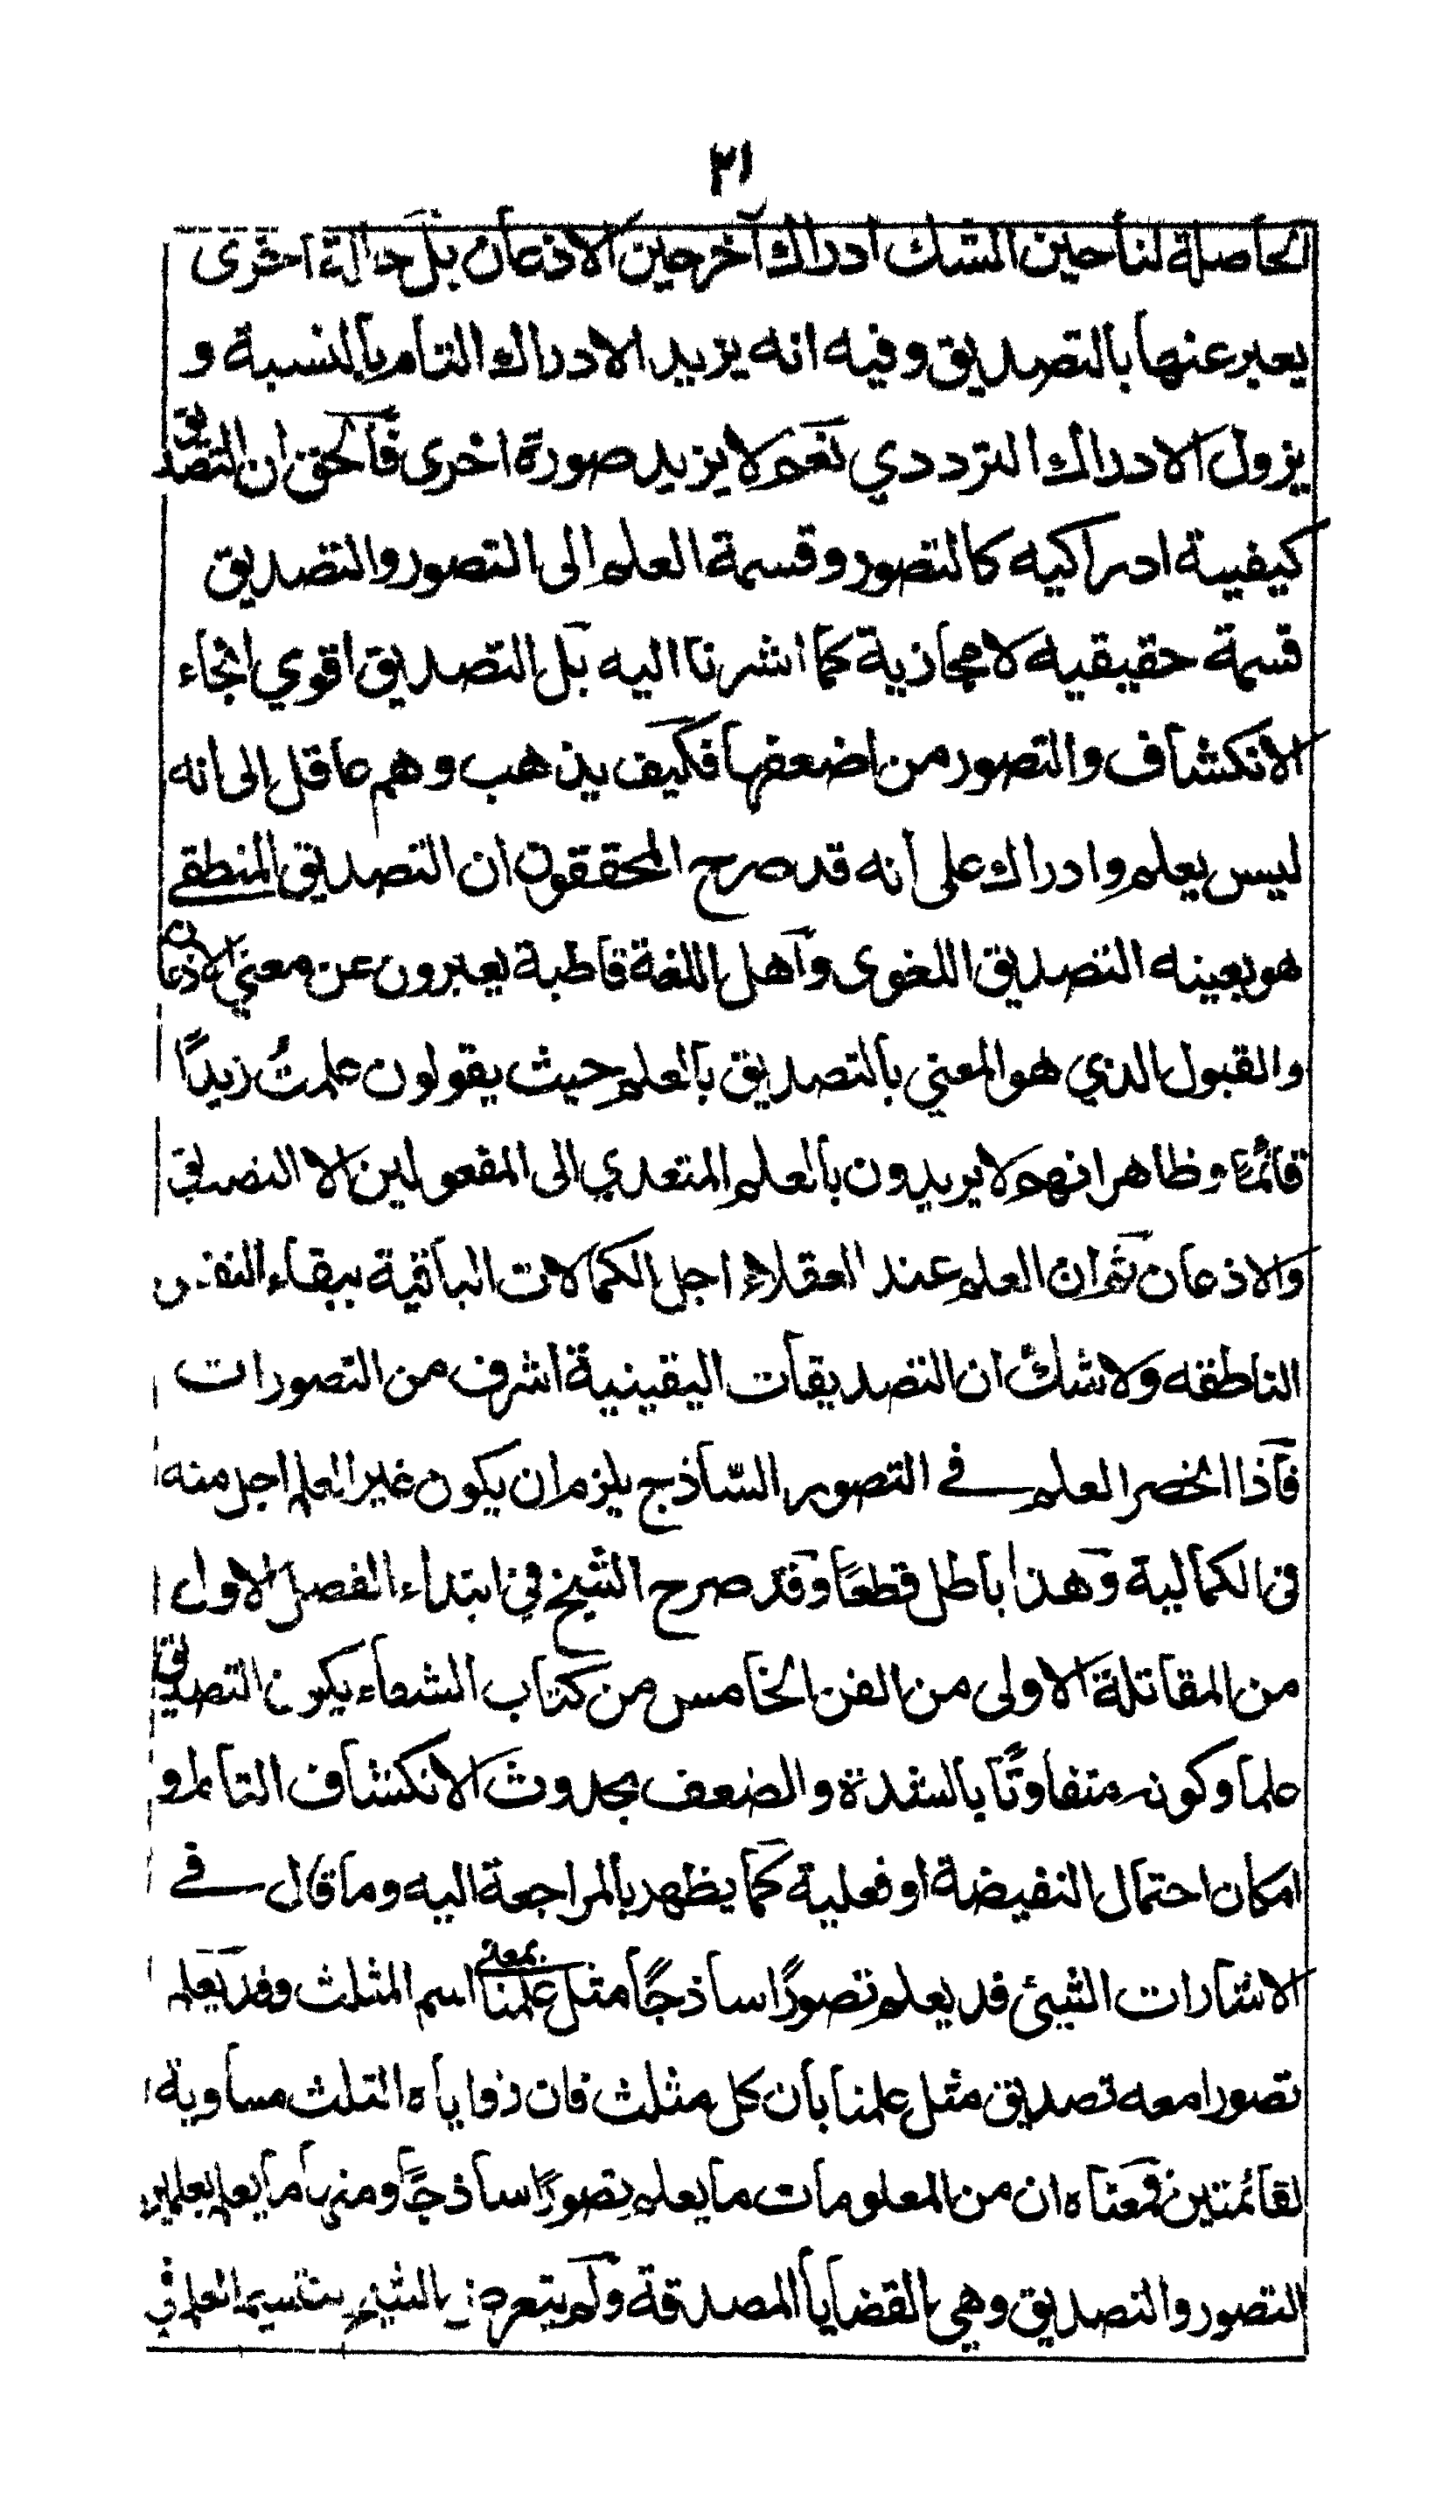 ٢١
الحاصلة لنا حين الشك ادراك آخر حين الاذعان بل حالة اخرى
يعبر عنها بالتصديق وفيه انه يزيد الادراك التام بالنسبة و
يزول الادراك الترددي نعم لا يزيد صورة اخرى فالحق ان التصديق
كيفية ادراكيه كالتصور وقسمة العلم الى التصور والتصديق
قسمة حقيقيه لا مجازية كما اشرنا اليه بل التصديق اقوي انحاء
الانكشاف والتصور من اضعفها فكيف يذهب وهم عاقل الى انه
ليس بعلم وادراك على انه قد صرح المحققون ان التصديق المنطقي
هو بعينه التصديق اللغوى واهل اللغة قاطبة يعبرون عن معني الاذعان
والقبول الذي هو المعني بالتصديق بالعلم حيث يقولون علمتُ زيداً
قائمًا وظاهر انهم لا يريدون بالعلم المتعدي الى المفعولين الا التصديق
والاذعان ثم ان العلم عند العقلاء اجل الكمالات الباقية ببقاء النفس
الناطقه ولا شك ان التصديقات اليقينية اشرف من التصورات
فاذا انحصر العلم في التصور الساذج يلزم ان يكون غير العلم اجل منه
فى الكمالية وهذا باطل قطعًا وقد صرح الشيخ في ابتداء الفصل الاول
من المقالة الاولى من الفن الخامس من كتاب الشفاء بكون التصديق
علما وكونه متفاوتًا بالشدة والضعف بحدوث الانكشاف التام او
امكان احتمال النقيضة او فعلية كما يظهر بالمراجعة اليه وما قال في
الاشارات الشيئ قد يعلم تصورًا ساذجًا مثل علمنا بمعنى اسم المثلث وقد يعلم
تصورا معه تصديق مثل علمنا بان كل مثلث فان زواياه الثلث مساوية
لقائمتين فمعناه ان من المعلومات ما يعلم بتصورًا ساذجًا ومنها ما يعلم بعلمين
التصور والتصديق وهي القضايا المصدقة ولم يتعرض الشيخ بتقسيم العلم في